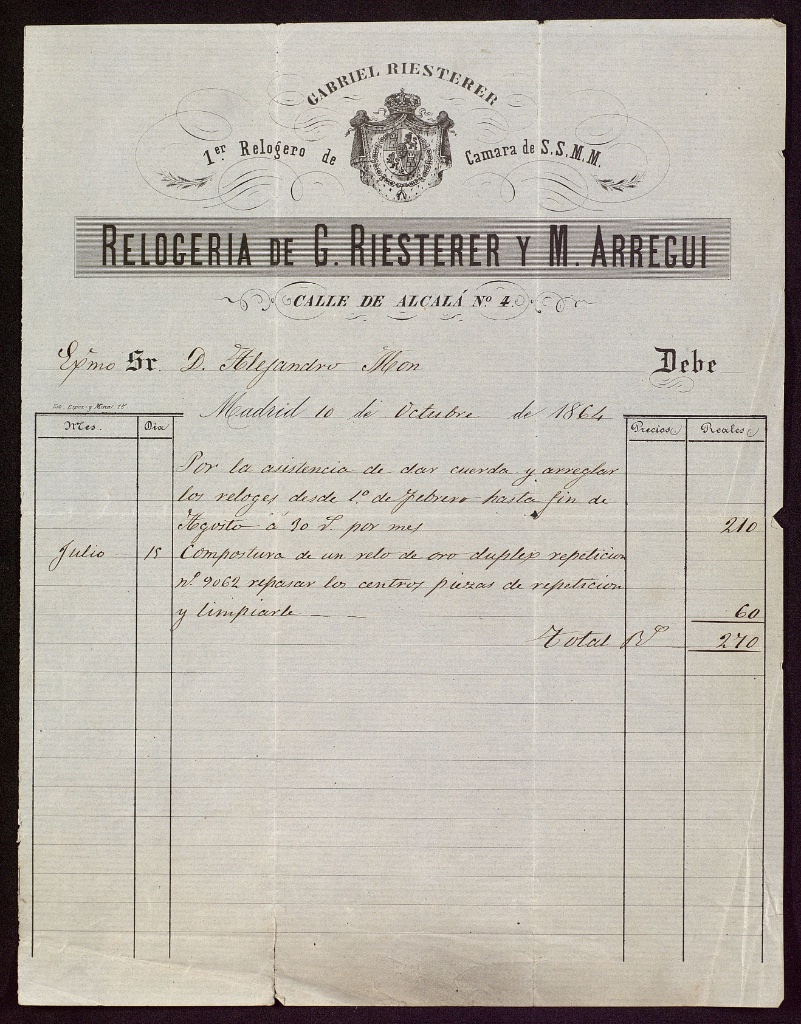 GABRIEL RIESTERER
1er Relogero de Camara de S.S.M.M.
RELOGERIA DE G. RIESTERER Y M. ARREGUI
CALLE DE ALCALÁ Nº 4.
Exmo Sr. D. Alejandro Mon Debe
Madrid 10 de Octubre de 1864
Mes. Dia Precios Reales
Por la asistencia de dar cuerda y arreglar
los reloges desde 1º de Febrero hasta fin de
Agosto á 30 r. por mes 210
Julio 15 Compostura de un relo de oro duplex repeticion
nº 9062 repasar los centros piezas de repeticion
y limpiarle 60
Total Rs 270